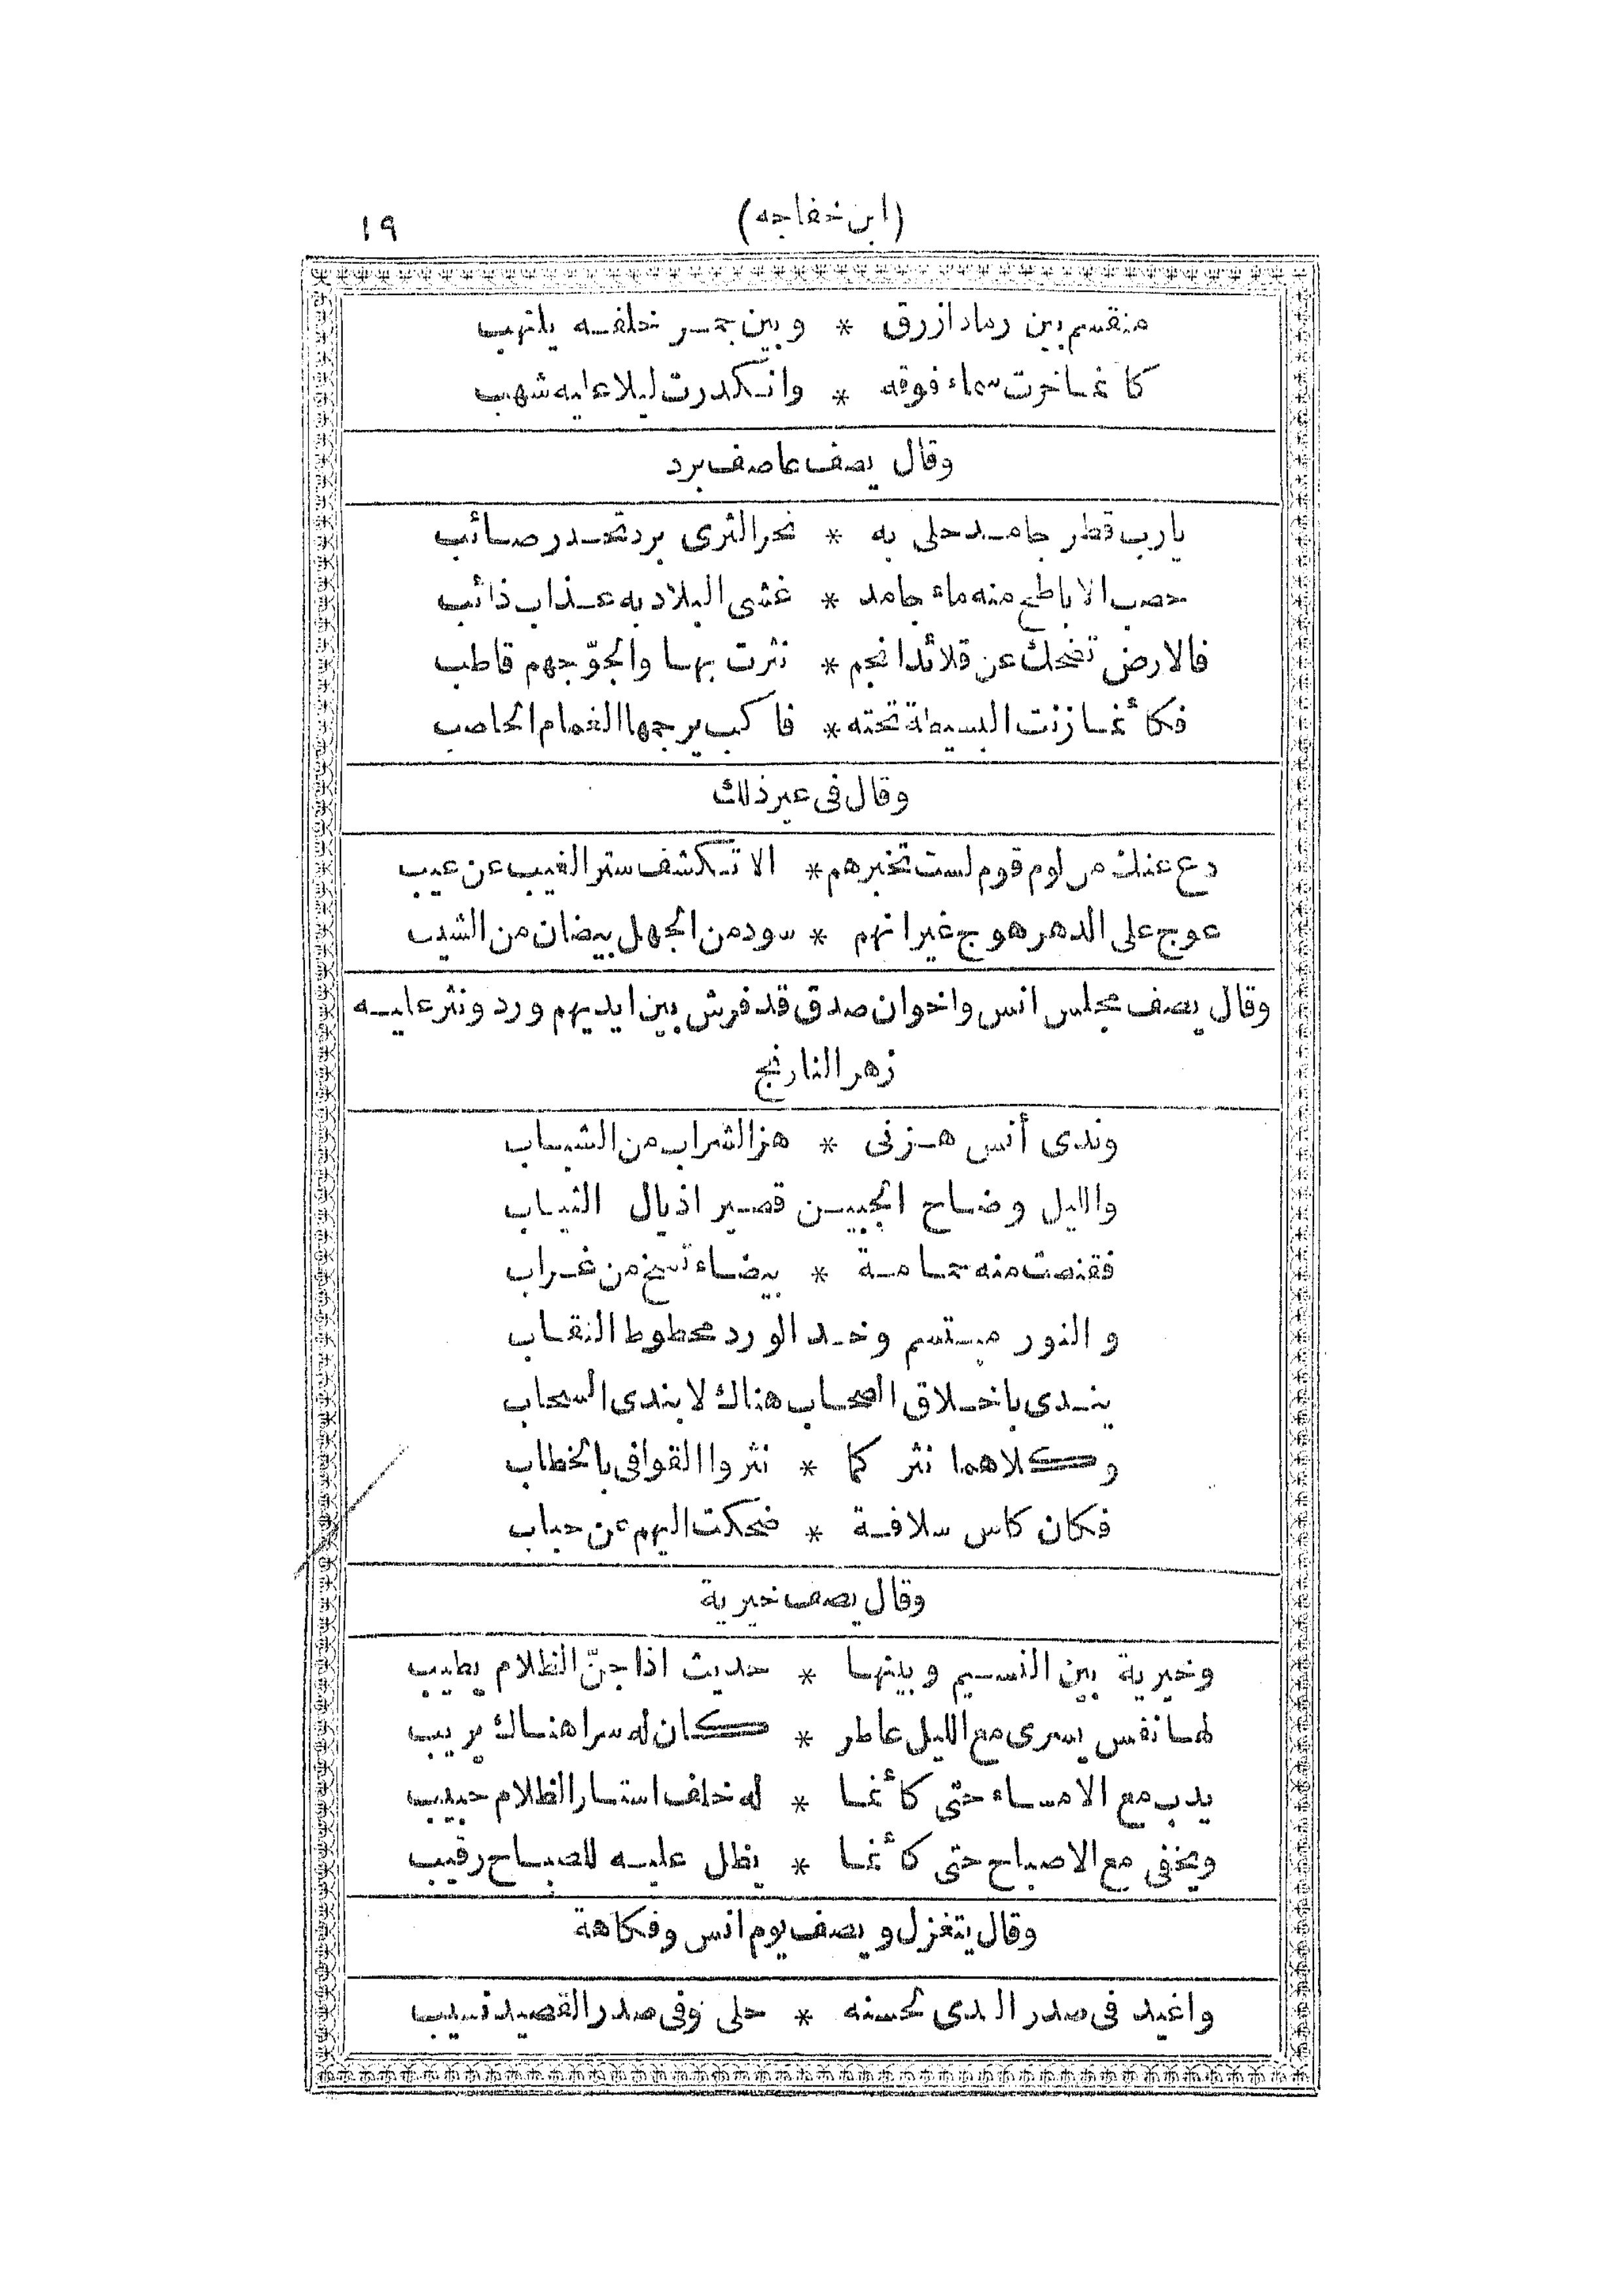 (ابن خفاجه)
١٩
منقسم بين رماد ازرق * وبين جمر خلفه يلتهب
كأنما خرت سماء فوقه * وانكدرت ليلا عليه شهب
وقال يصف عاصف برد
يارب قطر جامد حلى به * نحر الثرى برد تحدر صائب
حصب الاباطح منه ماء جامد * غشى البلاد به عذاب ذائب
فالارض تضحك عن قلائد انجم * نثرت بها والجوّ جهم قاطب
فكأنما زنت البسيطة تحته * فاكب يرجمها الغمام الحاصب
وقال فى غير ذلك
دع عنك من لوم قوم لست تخبرهم * الا تكشف ستر الغيب عن عيب
عوج على الدهر هوج غير انهم * سود من الجهل بيضان من الشيب
وقال يصف مجلس انس واخوان صدق قد فرش بين ايديهم ورد ونثر عليه
زهر النارنج
وندى أنس هزنى * هز الشراب من الشباب
والليل وضاح الجبين قصير اذيال الثياب
فقنصت منه حمامة * بيضاء تسنخ من غراب
والنور مبتسم وخد الورد محطوط النقاب
يندى باخلاق الصحاب هناك لا بندى السحاب
وكلاهما نثر كما * نثروا القوافى بالخطاب
فكان كاس سلافة * ضحكت اليهم عن حباب
وقال يصف خيرية
وخيرية بين النسيم وبينها * حديث اذا جنّ الظلام يطيب
لها نفس يسرى مع الليل عاطر * كان له سرا هناك يريب
يدب مع الامساء حتى كأنما * له خلف استار الظلام حبيب
ويخفى مع الاصباح حتى كأنما * يظل عليه للصباح رقيب
وقال يتغزل ويصف يوم انس وفكاهة
واغيد فى صدر الندى لحسنه * حلى وفى صدر القصيد نسيب